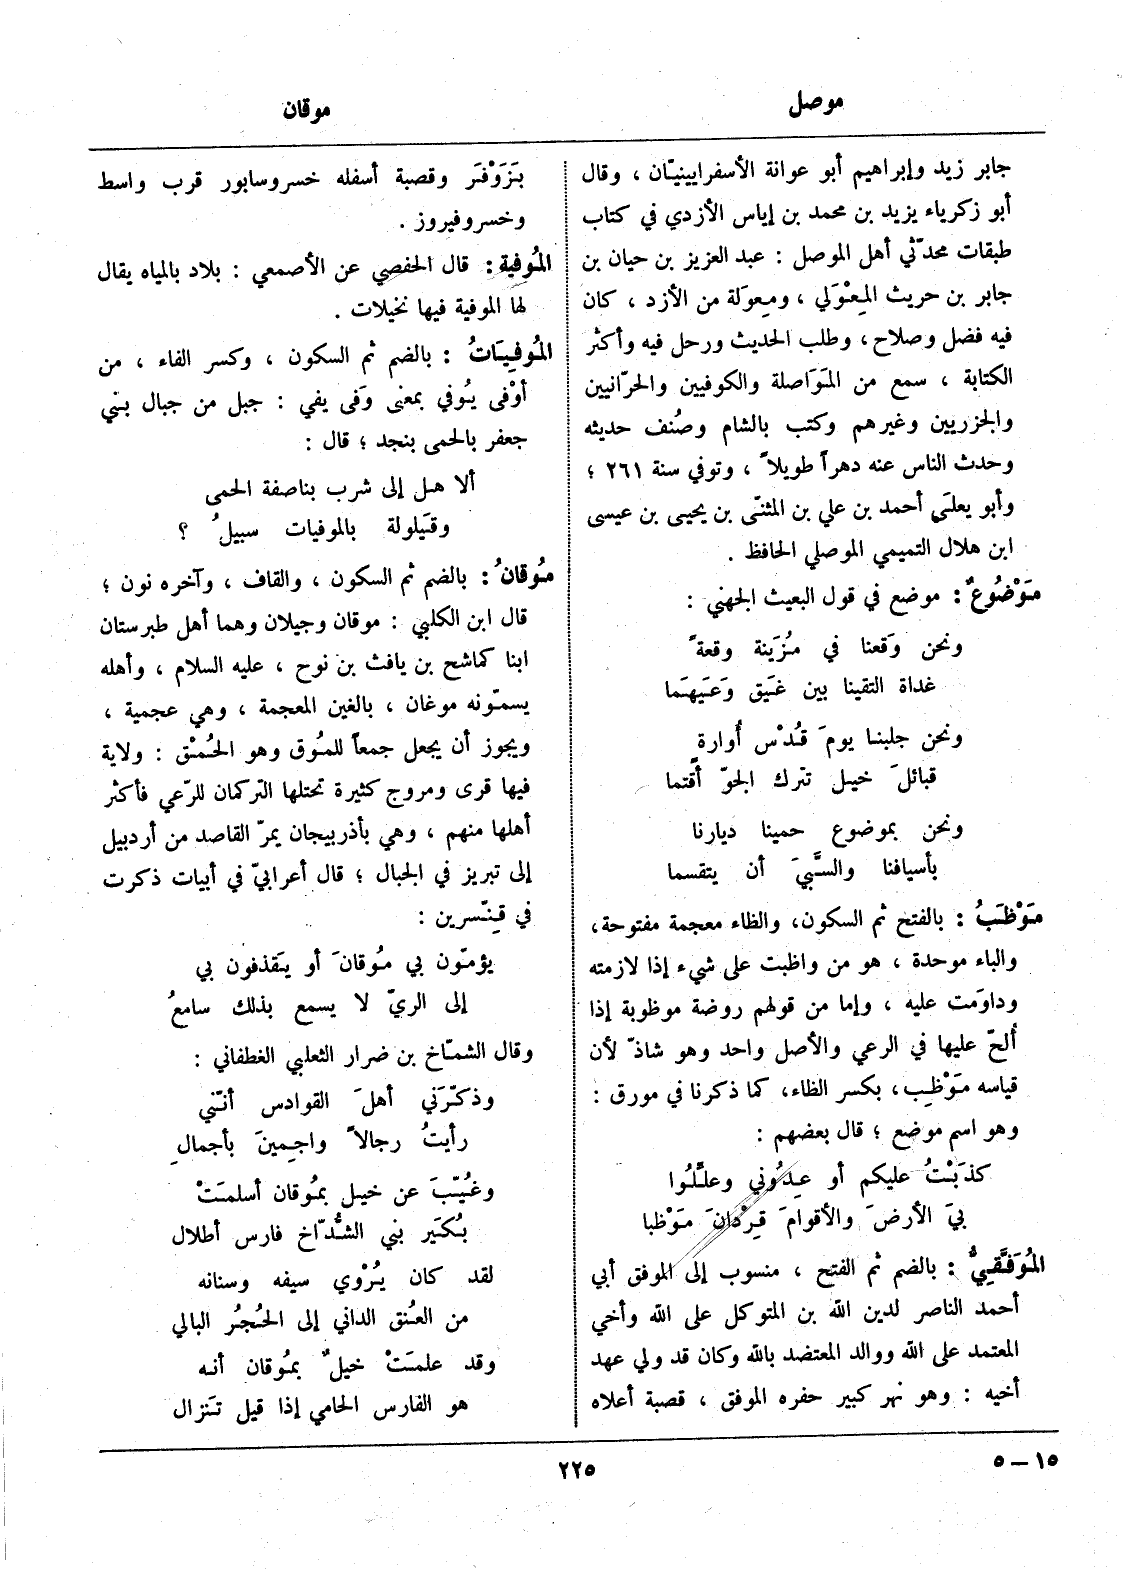 موصل
موقان
جابر زيد وإبراهيم أبو عوانة الأسفرايينيّان ، وقال
أبو زكرياء يزيد بن محمد بن إياس الأزدي في كتاب
طبقات محدّثي أهل الموصل : عبد العزيز بن حيان بن
جابر بن حريث المِعْوَلي ، ومِعوَلة من الأزد ، كان
فيه فضل وصلاح، وطلب الحديث ورحل فيه وأكثر
الكتابة ، سمع من المَوَاصلة والكوفيين والحرّانيين
والجزريين وغيرهم وكتب بالشام وصُنف حديثه
وحدث الناس عنه دهراً طويلاً ، وتوفي سنة ٢٦١ ؛
وأبو يعلَى أحمد بن علي بن المثنّى بن يحيى بن عيسى
ابن هلال التميمي الموصلي الحافظ .
مَوْضُوعٌ : موضع في قول البعيث الجهني :
ونحن وَقعنا في مُزَينة وقعةً
غداة التقينا بين غَيق وَعَيهَما
ونحن جلبنا يومَ قُدْس أُوارةٍ
قبائلَ خيل تترك الجوّ أقتما
ونحن بموضوع حمينا ديارنا
بأسيافنا والسَّبيَ أن يتقسما
مَوْظَبُ : بالفتح ثم السكون، والظاء معجمة مفتوحة،
والباء موحدة ، هو من واظبت على شيء إذا لازمته
وداوَمت عليه ، وإما من قولهم روضة موظوبة إذا
أُلحّ عليها في الرعي والأصل واحد وهو شاذّ لأن
قياسه مَوْظِب، بكسر الظاء، كما ذكرنا في مورق :
وهو اسم موضع ؛ قال بعضهم :
كذَبْتُ عليكم أو عِدُوني وعلّلُوا
بيَ الأرضَ والأقوامَ قِرْدَانَ مَوْظبا
المُوَفَّقيُّ : بالضم ثم الفتح ، منسوب إلى الموفق أبي
أحمد الناصر لدين الله بن المتوكل على الله وأخي
المعتمد على الله ووالد المعتضد بالله وكان قد ولي عهد
أخيه : وهو نهر كبير حفره الموفق ، قصبة أعلاه
بَزَوْفَر وقصبة أسفله خسروسابور قرب واسط
وخسروفيروز .
المُوفية : قال الحفصي عن الأصمعي : بلاد بالمياه يقال
لها الموفية فيها نخيلات .
المُوفِيَاتُ : بالضم ثم السكون ، وكسر الفاء ، من
أوْفى يُوفي بمعنى وَفى يفي : جبل من جبال بني
جعفر بالحمى بنجد ؛ قال :
ألا هل إلى شرب بناصفة الحمى
وقَيلولة بالموفيات سبيلُ ؟
مُوقانُ : بالضم ثم السكون ، والقاف ، وآخره نون ؛
قال ابن الكلبي : موقان وجيلان وهما أهل طبرستان
ابنا كماشح بن يافث بن نوح ، عليه السلام ، وأهله
يسمّونه موغان ، بالغين المعجمة ، وهي عجمية ،
ويجوز أن يجعل جمعاً للمُوق وهو الحُمْق : ولاية
فيها قرى ومروج كثيرة تحتلها التركمان للرّعي فأكثر
أهلها منهم ، وهي بأذربيجان يمرّ القاصد من أردبيل
إلى تبريز في الجبال ؛ قال أعرابيّ في أبيات ذكرت
في قِنّسرين :
يؤمّون بي مُوقانَ أو يَقذفون بي
إلى الريّ لا يسمع بذلك سامعُ
وقال الشمّاخ بن ضرار الثعلبي الغطفاني :
وذكّرَني أهلَ القوادس أنّني
رأيتُ رجالاً واجِمينَ بأجمالِ
وغُيّبَ عن خيل بمُوقان أسلمَتْ
بُكَير بني الشُّدّاخ فارس أطلال
لقد كان يُرْوي سيفه وسنانه
من العُنق الداني إلى الحُجُر البالي
وقد علمَتْ خيلٌ بمُوقان أنه
هو الفارس الحامي إذا قيل تَنزال
١٥ – ٥
٢٢٥